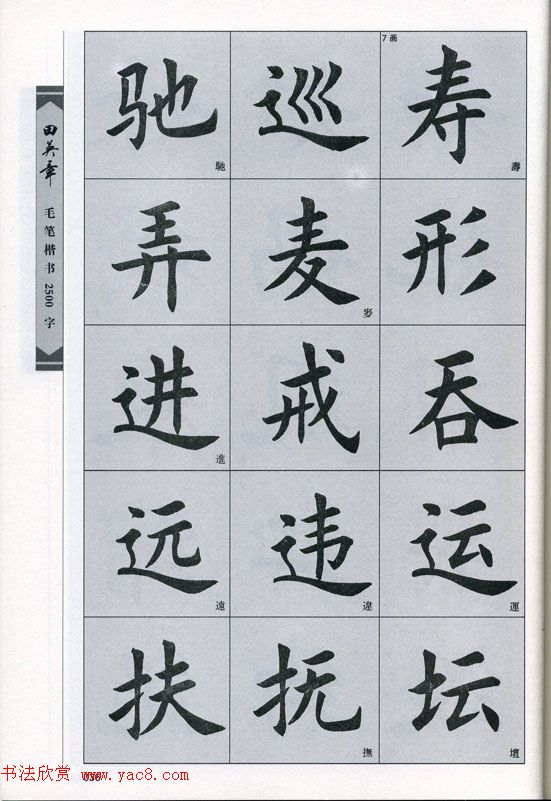 田英章 毛笔楷书 2500 字
7画
寿 壽
形
吞
运 運
坛 壇
巡
麦 麥
戒
违 違
抚 撫
驰 馳
弄
进 進
远 遠
扶
036
书法欣赏 www.yac8.com